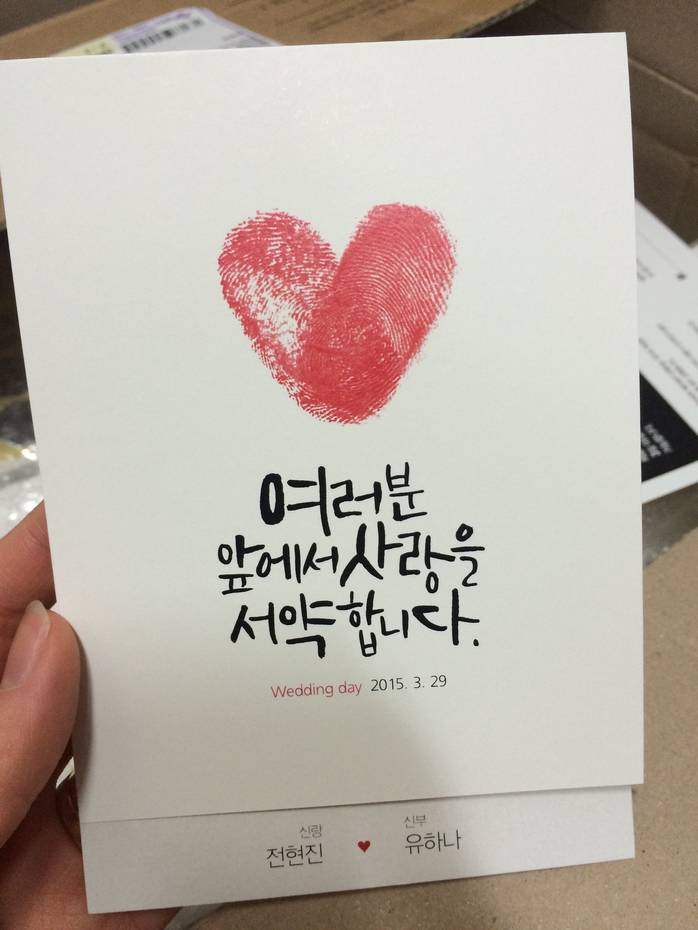 여러분
앞에서 사랑을
서약합니다.
Wedding day 2015. 3. 29
신랑 신부
전현진 ♥ 유하나